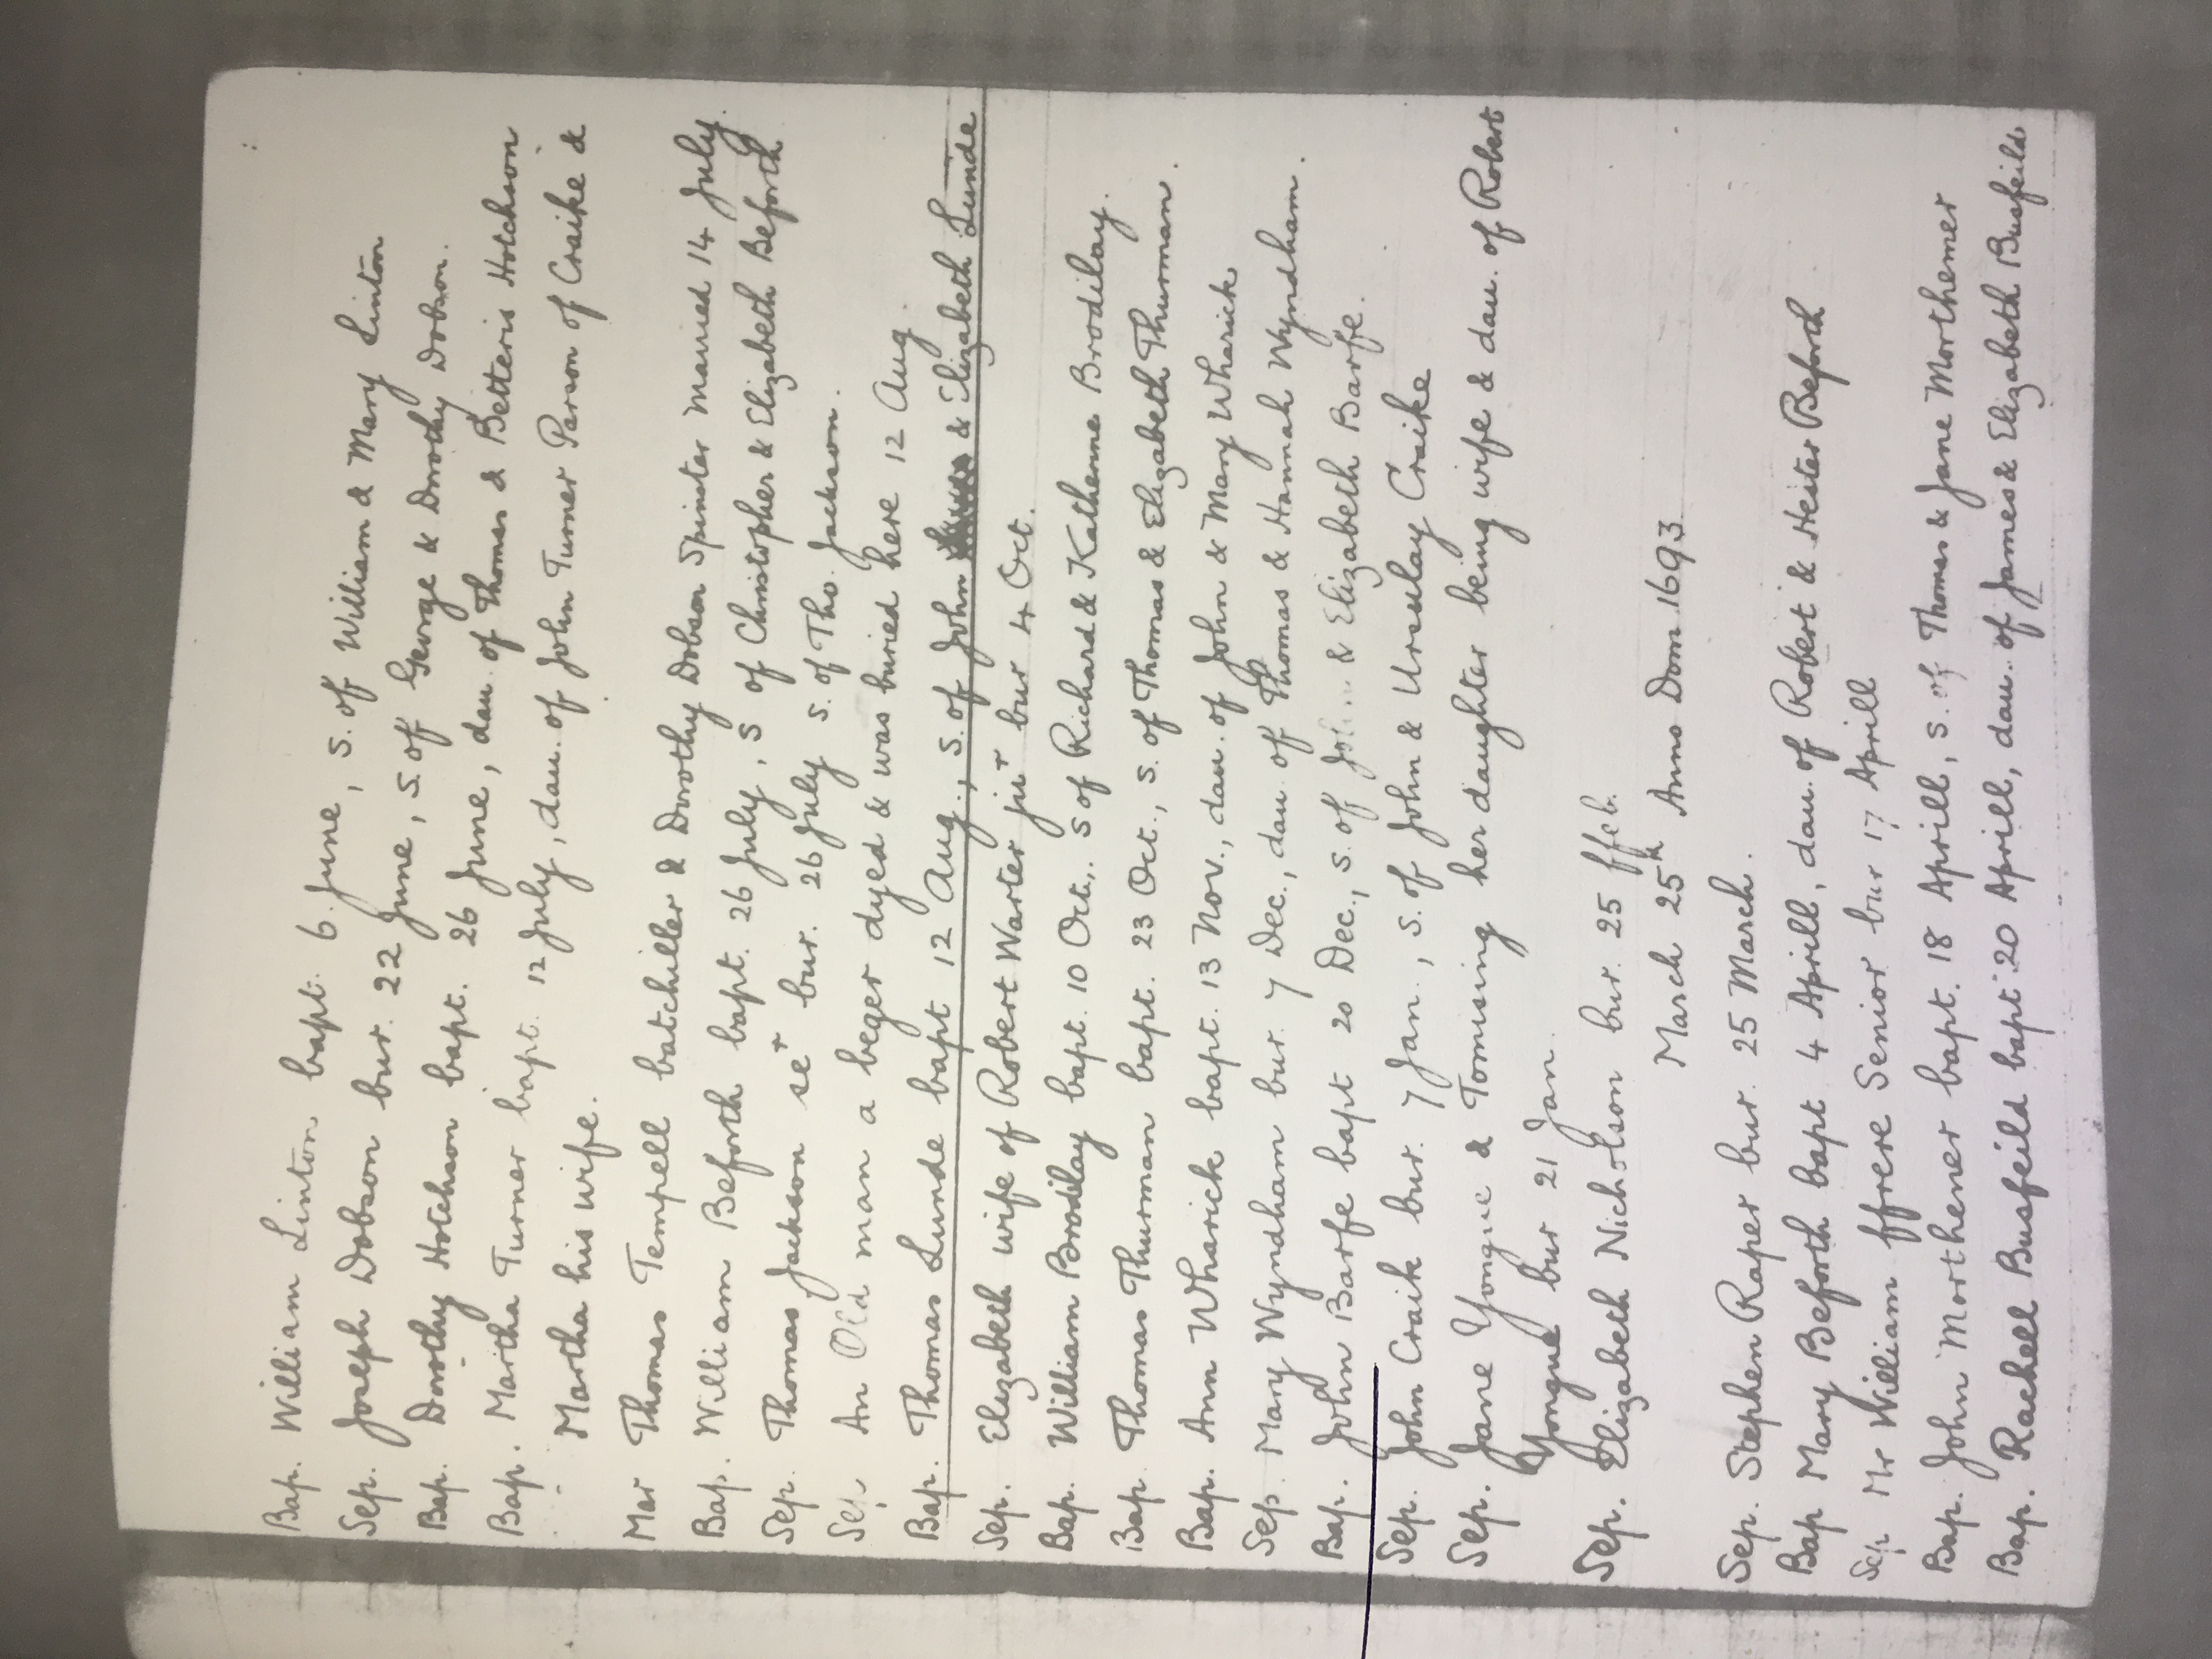 Bap. William Linton bapt. 6 June, s. of William & Mary Linton
Sep. Joseph Dobson bur. 22 June, s. of George & Dorothy Dobson.
Bap. Dorothy Hotchson bapt. 26 June, dau. of Thomas & Betteris Hotchson
Bap. Martha Turner bapt. 12 July, dau. of John Turner Parson of Craike &
Martha his wife.
Mar Thomas Tempell batchiller & Dorothy Dobson Spinster married 14 July.
Bap. William Beforth bapt. 26 July, s of Christopher & Elizabeth Beforth
Sep. Thomas Jackson se^r bur. 26 July s. of Tho. Jackson.
Sep An Old man a beger dyed & was buried here 12 Aug.
Bap. Thomas Lunde bapt 12 Aug., s. of John & Elizabeth Lunde
Sep. Elizabeth wife of Robert Warter ju^r bur 4 Oct.
Bap. William Brodilay bapt. 10 Oct., s of Richard & Katherine Brodilay.
Bap Thomas Thurman bapt. 23 Oct., s. of Thomas & Elizabeth Thurman.
Bap. Ann Wharick bapt. 13 Nov., dau. of John & Mary Wharick
Sep. Mary Wyndham bur. 7 Dec., dau. of Thomas & Hannah Wyndham.
Bap. John Barfe bapt 20 Dec., s. of John & Elizabeth Barfe.
Sep. John Craik bur. 7 Jan., s. of John & Ursulay Craike
Sep. Jane Yongue & Tomising her daughter being wife & dau. of Robert
Yongue bur 21 Jan.
Sep. Elizabeth Nicholson bur. 25 ffeb.
March 25^th Anno Dom 1693
Sep. Stephen Raper bur. 25 March.
Bap Mary Beforth bapt 4 Aprill, dau. of Robert & Hester Beforth
Sep. Mr William ffrere Senior bur 17 Aprill
Bap. John Morthener bapt. 18 Aprill, s. of Thomas & Jane Morthener
Bap. Rachell Busfeild bapt 20 Aprill, dau. of James & Elizabeth Busfeild